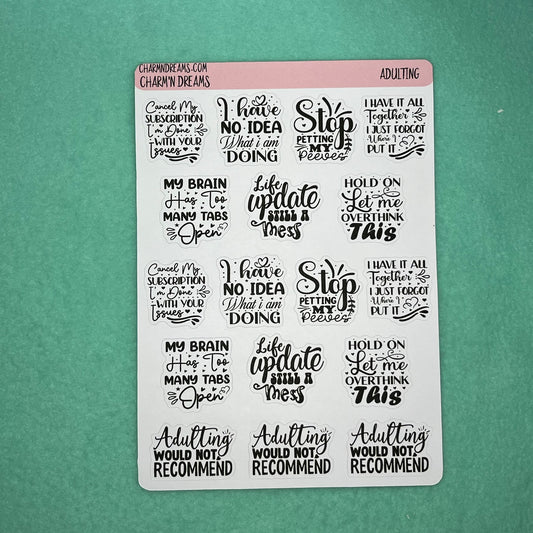 CHARMNDREAMS.COM
CHARM'N DREAMS
ADULTING
Cancel My
SUBSCRIPTION
I'm Done
WITH YOUR
Issues
I have
NO IDEA
What i am
DOING
Stop
PETTING
MY
Peeves
I HAVE IT ALL
Together
I JUST FORGOT
Where I
PUT IT
MY BRAIN
Has Too
MANY TABS
Open
Life
update
STILL A
Mess
HOLD ON
Let me
OVERTHINK
This
Cancel My
SUBSCRIPTION
I'm Done
WITH YOUR
Issues
I have
NO IDEA
What i am
DOING
Stop
PETTING
MY
Peeves
I HAVE IT ALL
Together
I JUST FORGOT
Where I
PUT IT
MY BRAIN
Has Too
MANY TABS
Open
Life
update
STILL A
Mess
HOLD ON
Let me
OVERTHINK
This
Adulting
WOULD NOT
RECOMMEND
Adulting
WOULD NOT
RECOMMEND
Adulting
WOULD NOT
RECOMMEND